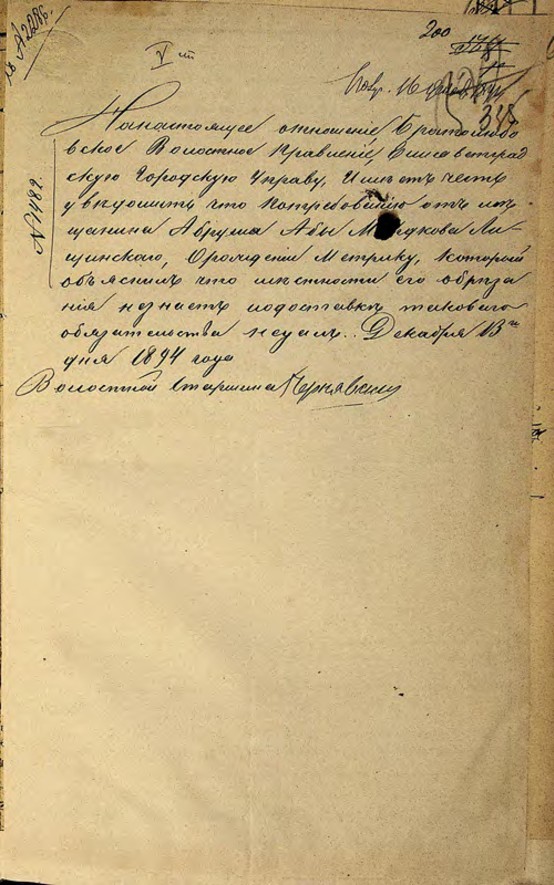 200
V ст
345
№ 4489.
На настоящее отношение Братолюбо
вское Волостное Правление, Елисаветград
скую Городскую Управу, Имеетъ честь
уведомить что Потребованию отъ ме
щанина Абрума Абы М рдкова Ли-
щинского, Орождении Метрику, который
объяснилъ что местности его обреза
ния незнаетъ иодоставке таковаго
обязательства недалъ.. Декабря 13го
дня 1894 года
Волостной Старшина Чернявский